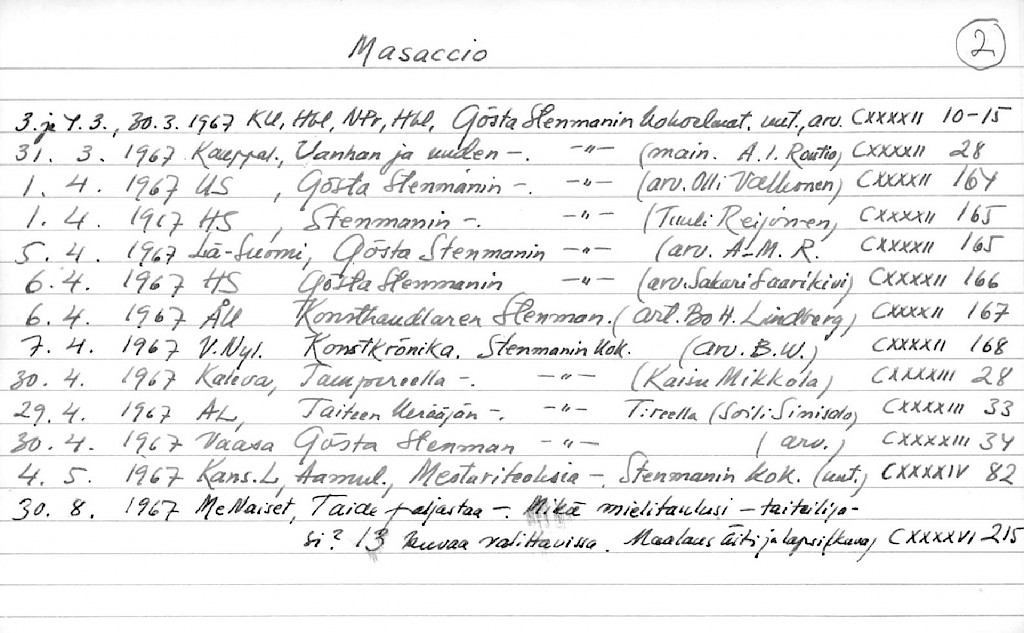 Masaccio
2
3. ja 4.3., 30.3. 1967 KU, Hbl, NPr, Hbl, Gösta Stenmanin kokoelmat. uut., arv. CXXXXII 10-15
31. 3. 1967 Kauppal., Vanhan ja uuden -. -"- (main. A.I. Routio) CXXXXII 28
1. 4. 1967 US, Gösta Stenmanin -. -"- (arv. Olli Valkonen) CXXXXII 164
1. 4. 1967 HS, Stenmanin -. -"- (Tuuli Reijonen) CXXXXII 165
5. 4. 1967 Lä-Suomi, Gösta Stenmanin -"- (arv. A-M. R. CXXXXII 165
6. 4. 1967 HS Gösta Stenmanin -"- (arv. Sakari Saarikivi) CXXXXII 166
6. 4. 1967 ÅU Konsthandlaren Stenman. (art. Bo H. Lindberg) CXXXXII 167
7. 4. 1967 V.Nyl. Konstkrönika. Stenmanin kok. (arv. B.W.) CXXXXII 168
30. 4. 1967 Kaleva, Tampereella -. -"- (Kaisu Mikkola) CXXXXIII 28
29. 4. 1967 AL, Taiteen kerääjän -. -"- T:reella (Soili Sinisalo) CXXXXIII 33
30. 4. 1967 Vaasa Gösta Stenman -"- (arv.) CXXXXIII 34
4. 5. 1967 Kans.L, Aamul., Mestariteoksia - Stenmanin kok. (uut.) CXXXXIV 82
30. 8. 1967 MeNaiset, Taide paljastaa -. Mikä mielitaulusi - taiteilija-
si? 13 kuvaa valittavissa. Maalaus äiti ja lapsi (kuva) CXXXXVI 215